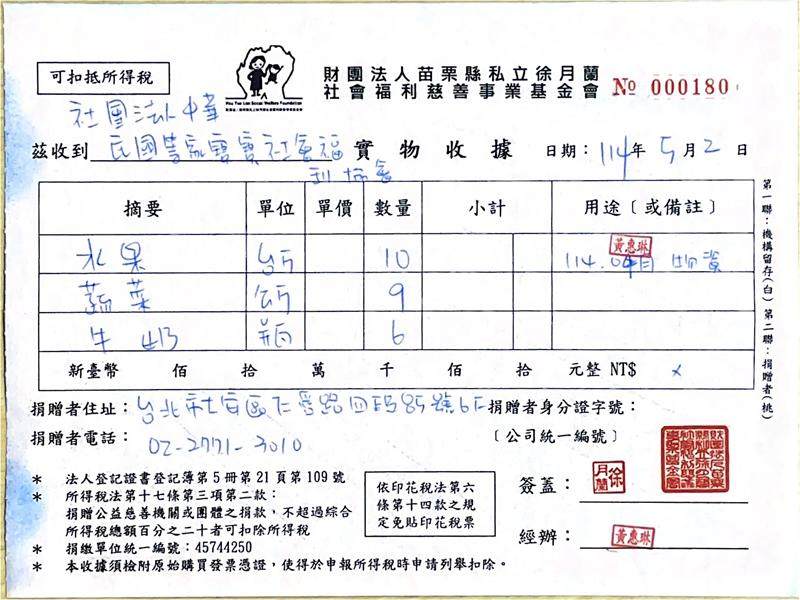 可扣抵所得稅
Hsu Yue Lan Social Welfare Foundation
財團法人苗栗縣私立徐月蘭
社會福利慈善事業基金會
№ 000180
社團法人中華
茲收到 民國善家寶寶社會福
利協會
實物收據
日期：114年5月2日
摘要 單位 單價 數量 小計 用途〔或備註〕
黃惠琳
水果 台斤 10 114.04月 物資
蔬菜 公斤 9
牛奶 瓶 6
新臺幣 佰 拾 萬 千 佰 拾 元整 NT$ x
捐贈者住址：台北市大安區仁愛路四段85號6F
捐贈者身分證字號：
捐贈者電話：02-2771-3010
〔公司統一編號〕
* 法人登記證書登記簿第5冊第21頁第109號
* 所得稅法第十七條第三項第二款：
捐贈公益慈善機關或團體之捐款，不超過綜合
所得稅總額百分之二十者可扣除所得稅
* 捐繳單位統一編號：45744250
* 本收據須檢附原始購買發票憑證，使得於申報所得稅時申請列舉扣除。
依印花稅法第六
條第十四款之規
定免貼印花稅票
簽蓋：
徐月蘭
經辦：
黃惠琳
第一聯：機構留存(白) 第二聯：捐贈者(桃)